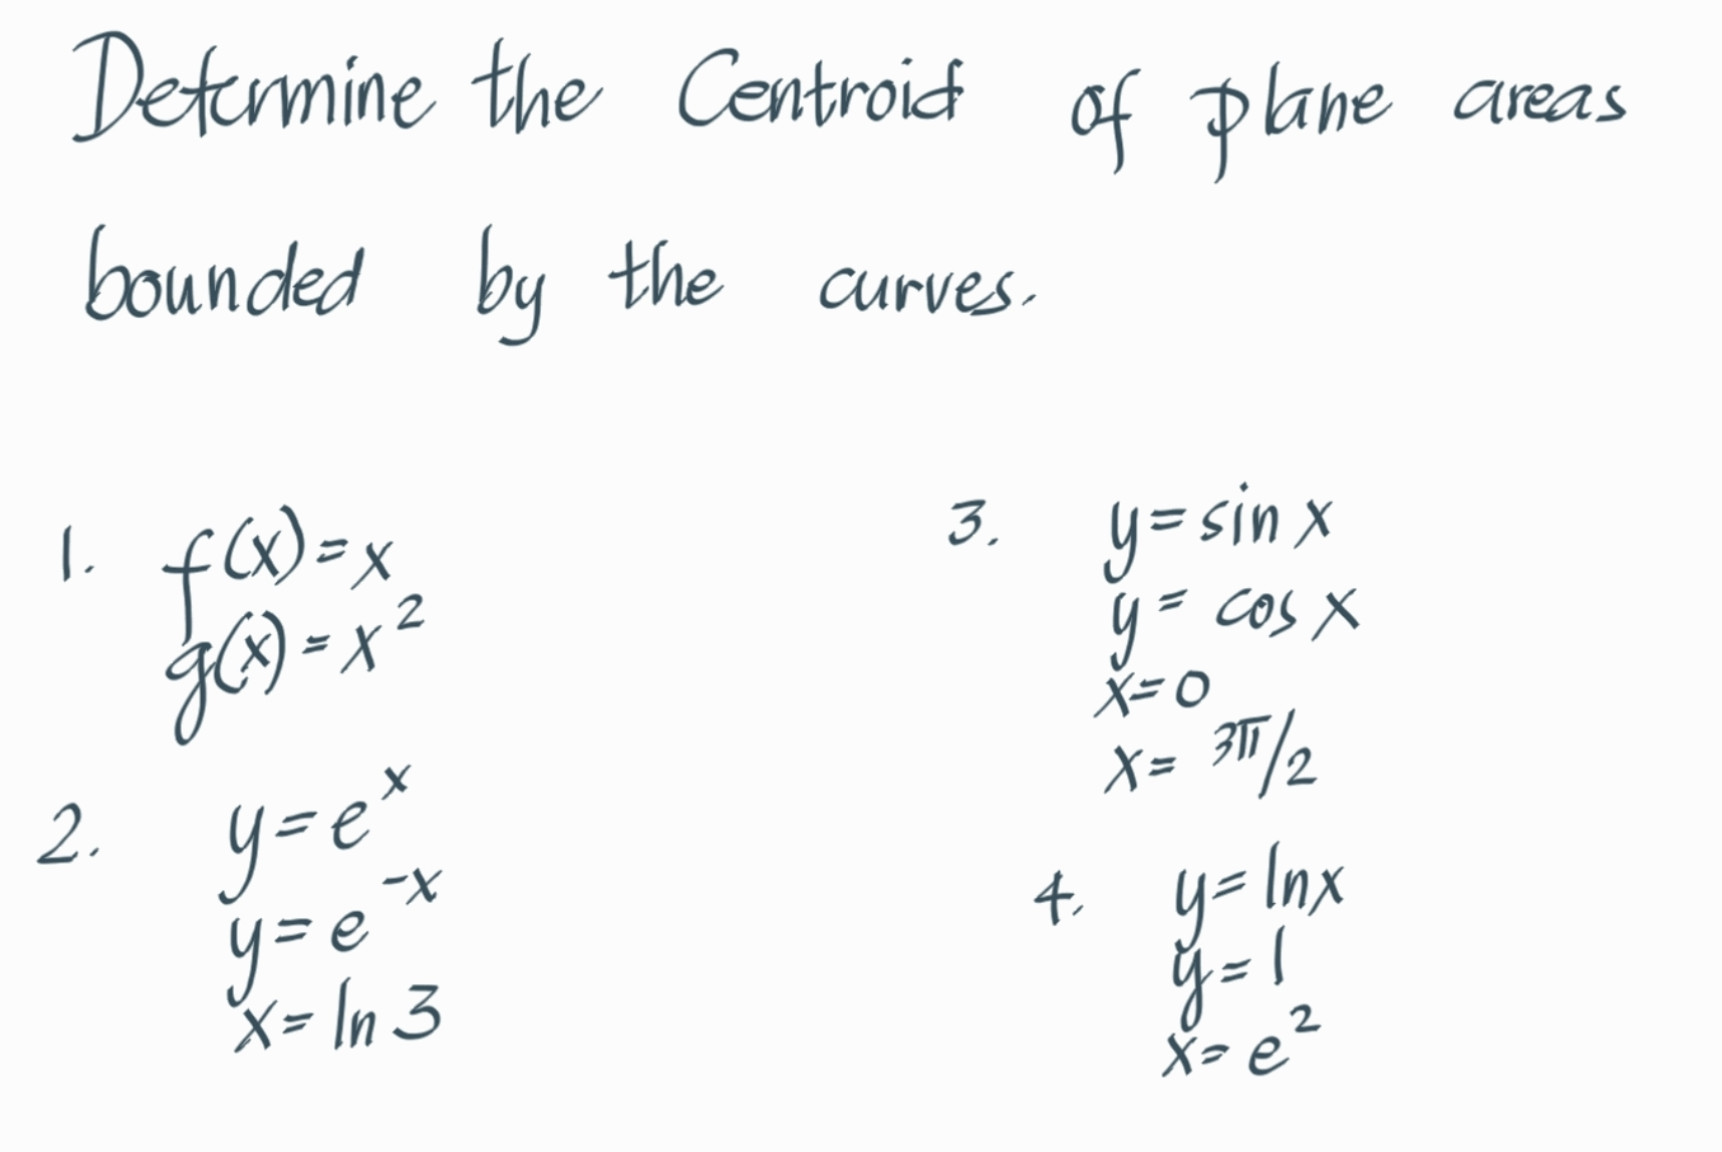 Determine the Centroid of plane areas
bounded by the curves.
1. f(x) = x
g(x) = x²
2. y = e^x
y = e^-x
x = ln 3
3. y = sin x
y = cos x
x = 0
x = 3π/2
4. y = ln x
y = 1
x = e²